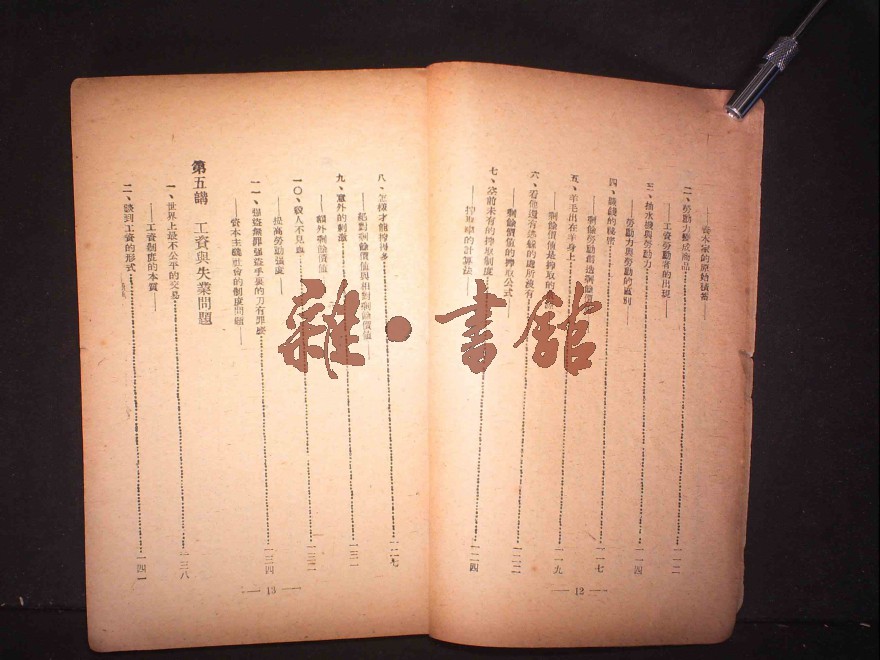 ——資本家的原始積蓄——
二、勞動力變成商品……一一二
——工資勞動者的出現——
三、抽水機與勞動力……一一四
——勞動力與勞動的區別——
四、賺錢的秘密……一一七
——剩餘勞動創造剩餘
五、羊毛出在羊身上……一一九
——剩餘價值是搾取的
六、看他還有
的處所沒有……一二二
——剩餘價值的搾取公式——
七、空前未有的搾取制度……一二四
——搾取率的計算法——
12
八、怎樣才能搾得多……一二七
——絕對剩餘價值與相對剩餘價值——
九、意外的刺激……一三一
——額外剩餘價值——
一〇、殺人不見血……一三三
——提高勞動强度——
一一、强盜無罪强盜手裏的刀有罪……一三四
——資本主義社會的制度問題——
第五講 工資與失業問題
一、世界上最不公平的交易……一三八
——工資制度的本質——
二、談到工資的形式……一四一
13
雜·書館